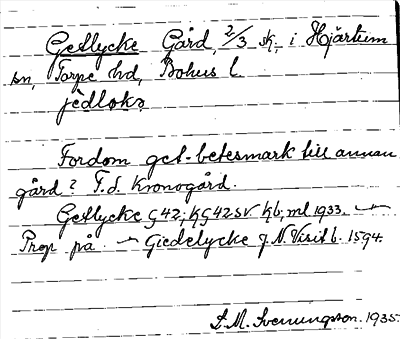 Getlycke Gård, 2/3 sk, i Hjärtum
sn, Torpe hd, Bohus l.
jèdloks
Fordom get-betesmark till annan
gård? F.d. Kronogård.
Getlycke G 42; KG 42 SV Kb, ml 1933.
Prep på Giedelycke J. N. Visit b. 1594.
S.M. Svenungson. 1935.